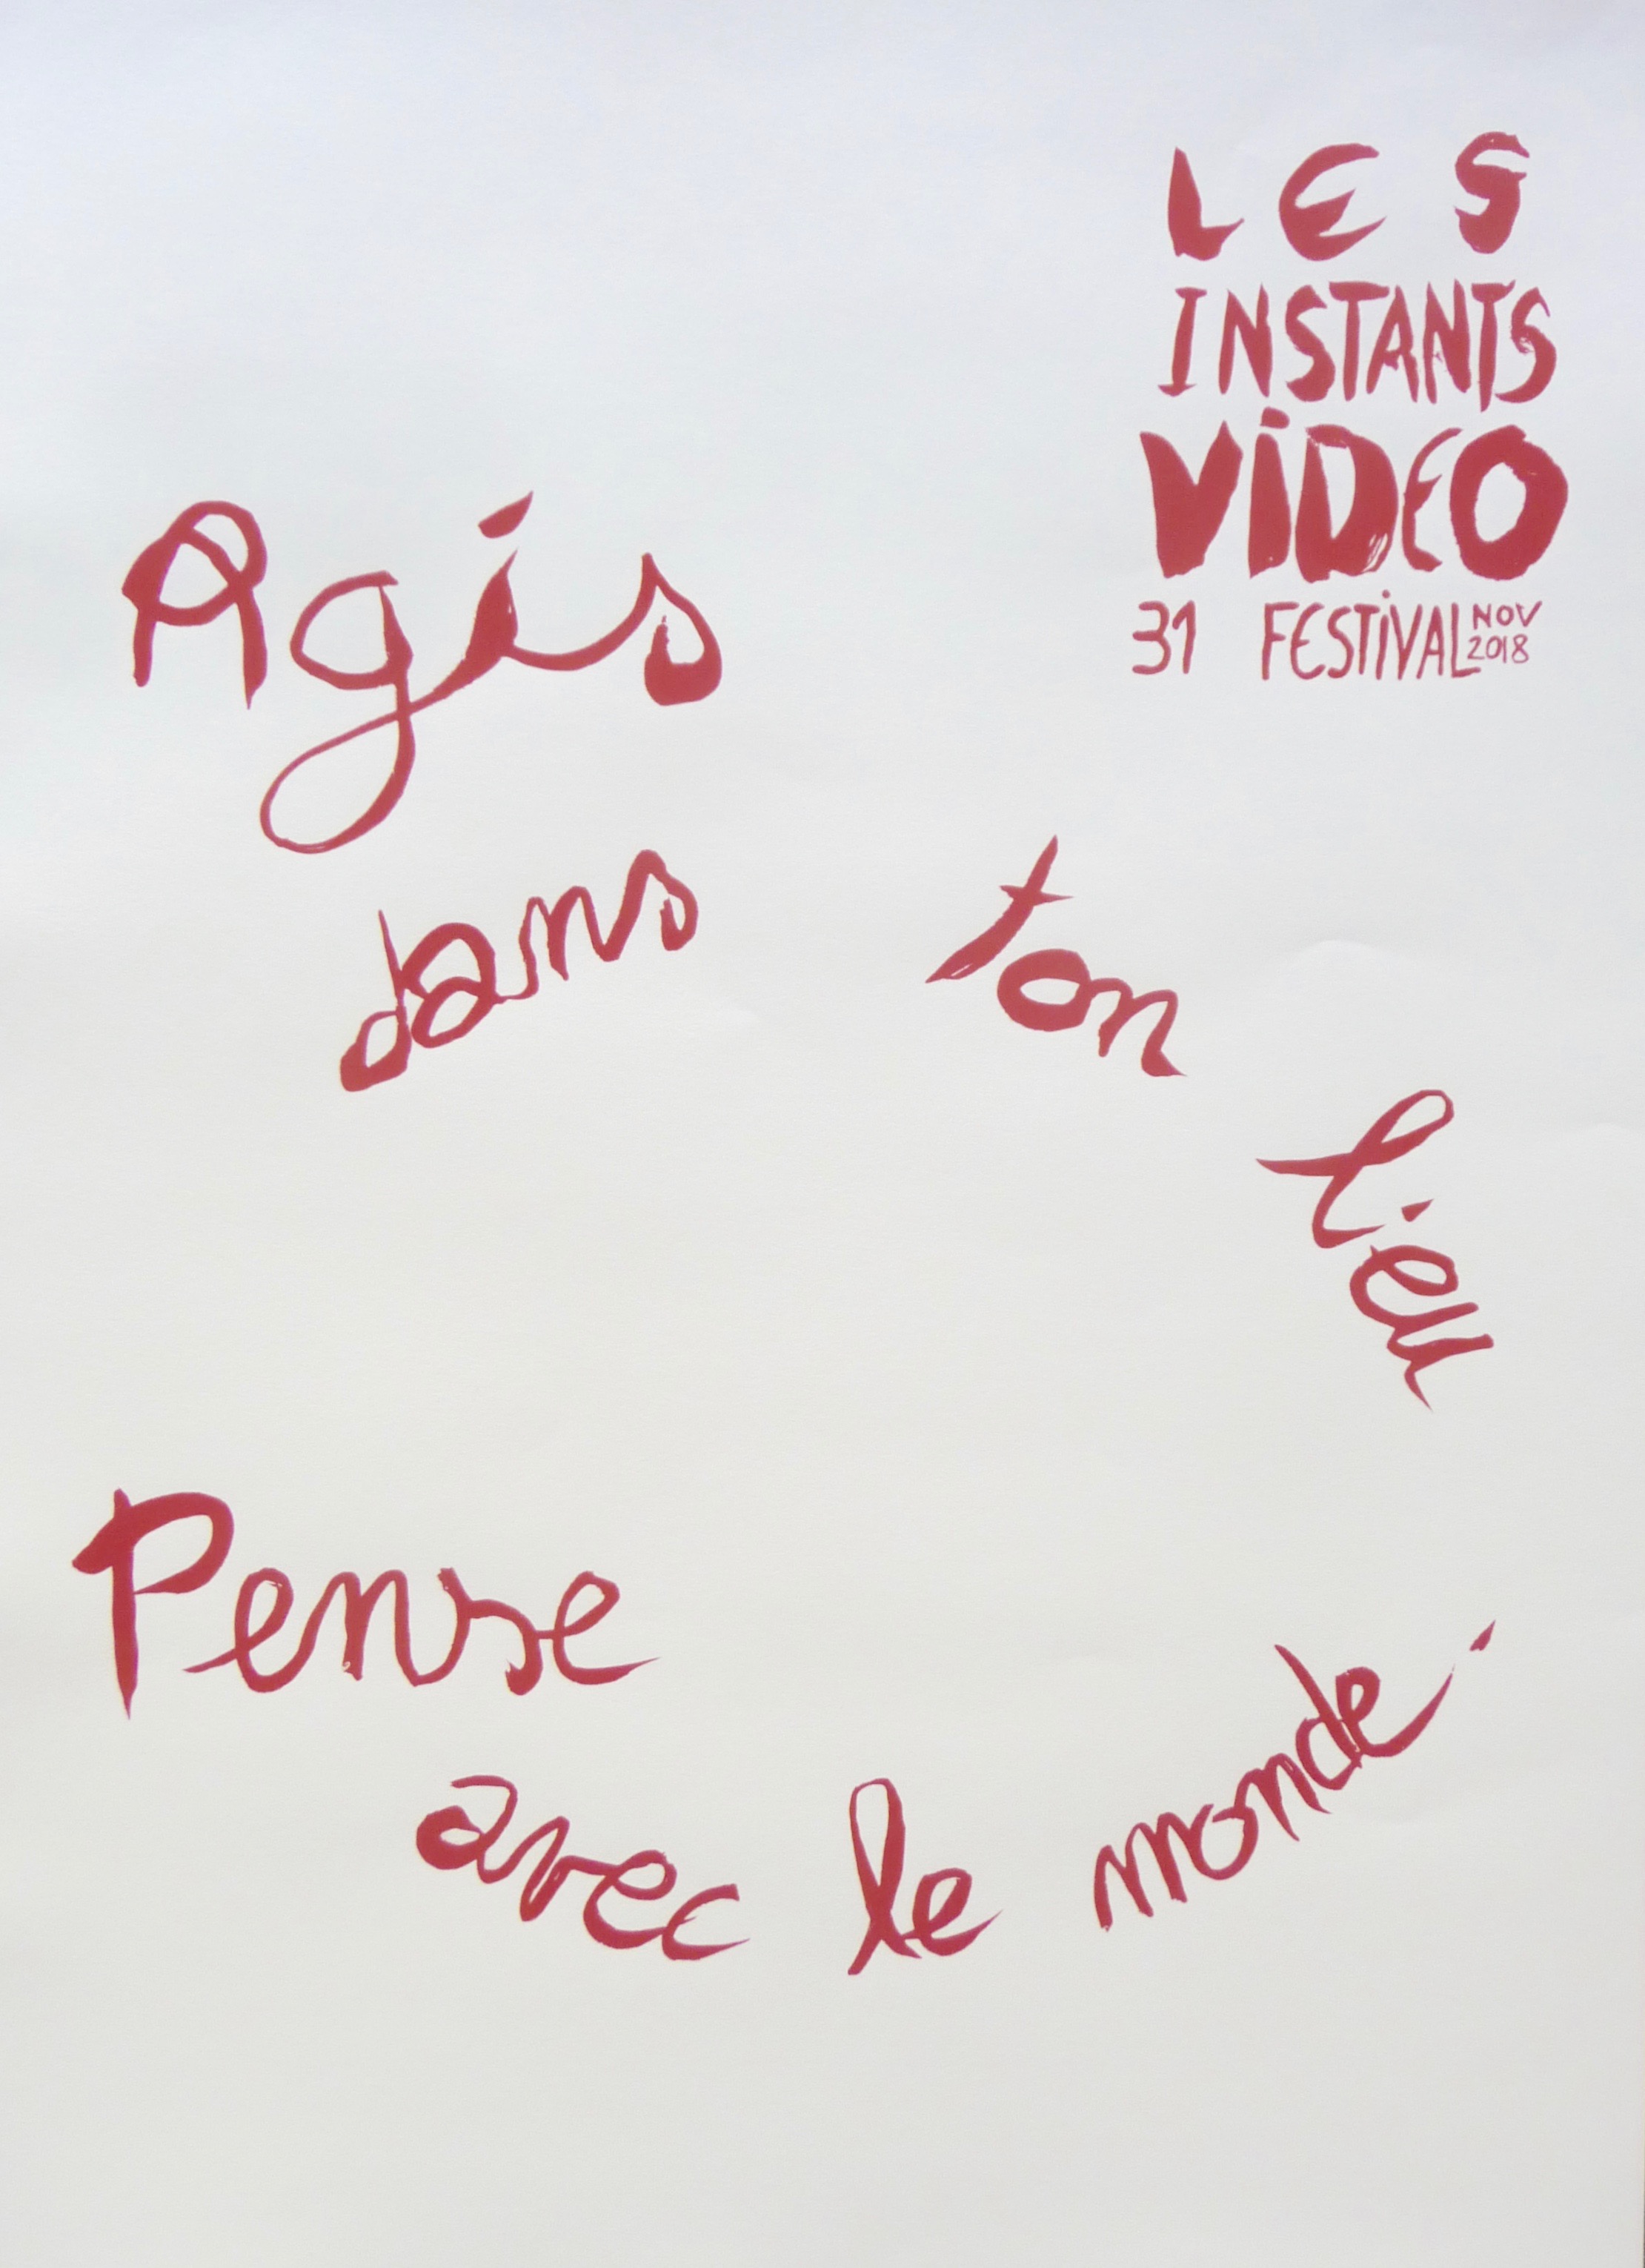 LES
INSTANTS
ViDEO
31 FESTiVAL NOV 2018
Agis
dans ton
lieu
Pense
avec le monde.